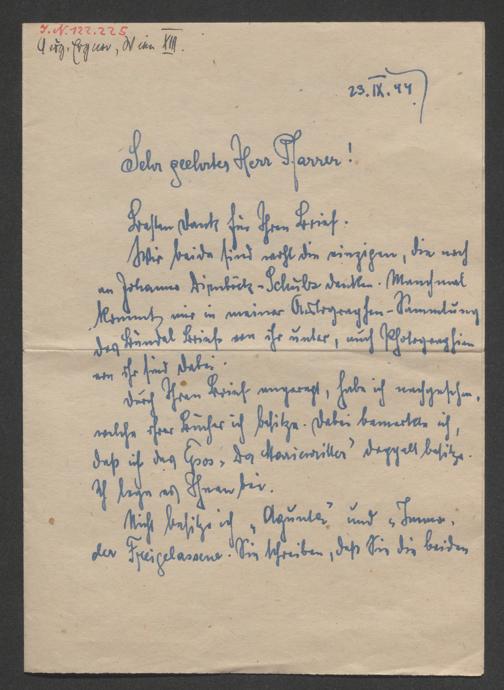 I.N. 122.225
Aug. Ergner, Wien XIII.
23.IX.44
Sehr geehrter Herr Pfarrer!
Besten Dank für Ihren Brief.
Wir beide sind wohl die einzigen, die noch
an Johanna -Schulz denken. Manchmal
kommt mir in meiner Autographen-Sammlung
das Bündel Briefe von ihr unter, auch Photographien
von ihr sind dabei.
Durch Ihren Brief angeregt, habe ich nachgesehen,
welche ihrer Bücher ich besitze. Dabei bemerkte ich,
daß ich das Epos „Der Marienritter" doppelt besitze.
Ich lege es Ihnen bei.
Nicht besitze ich „Agunta" und „Immo,
der Freigelassene. Sie schreiben, daß Sie die beiden